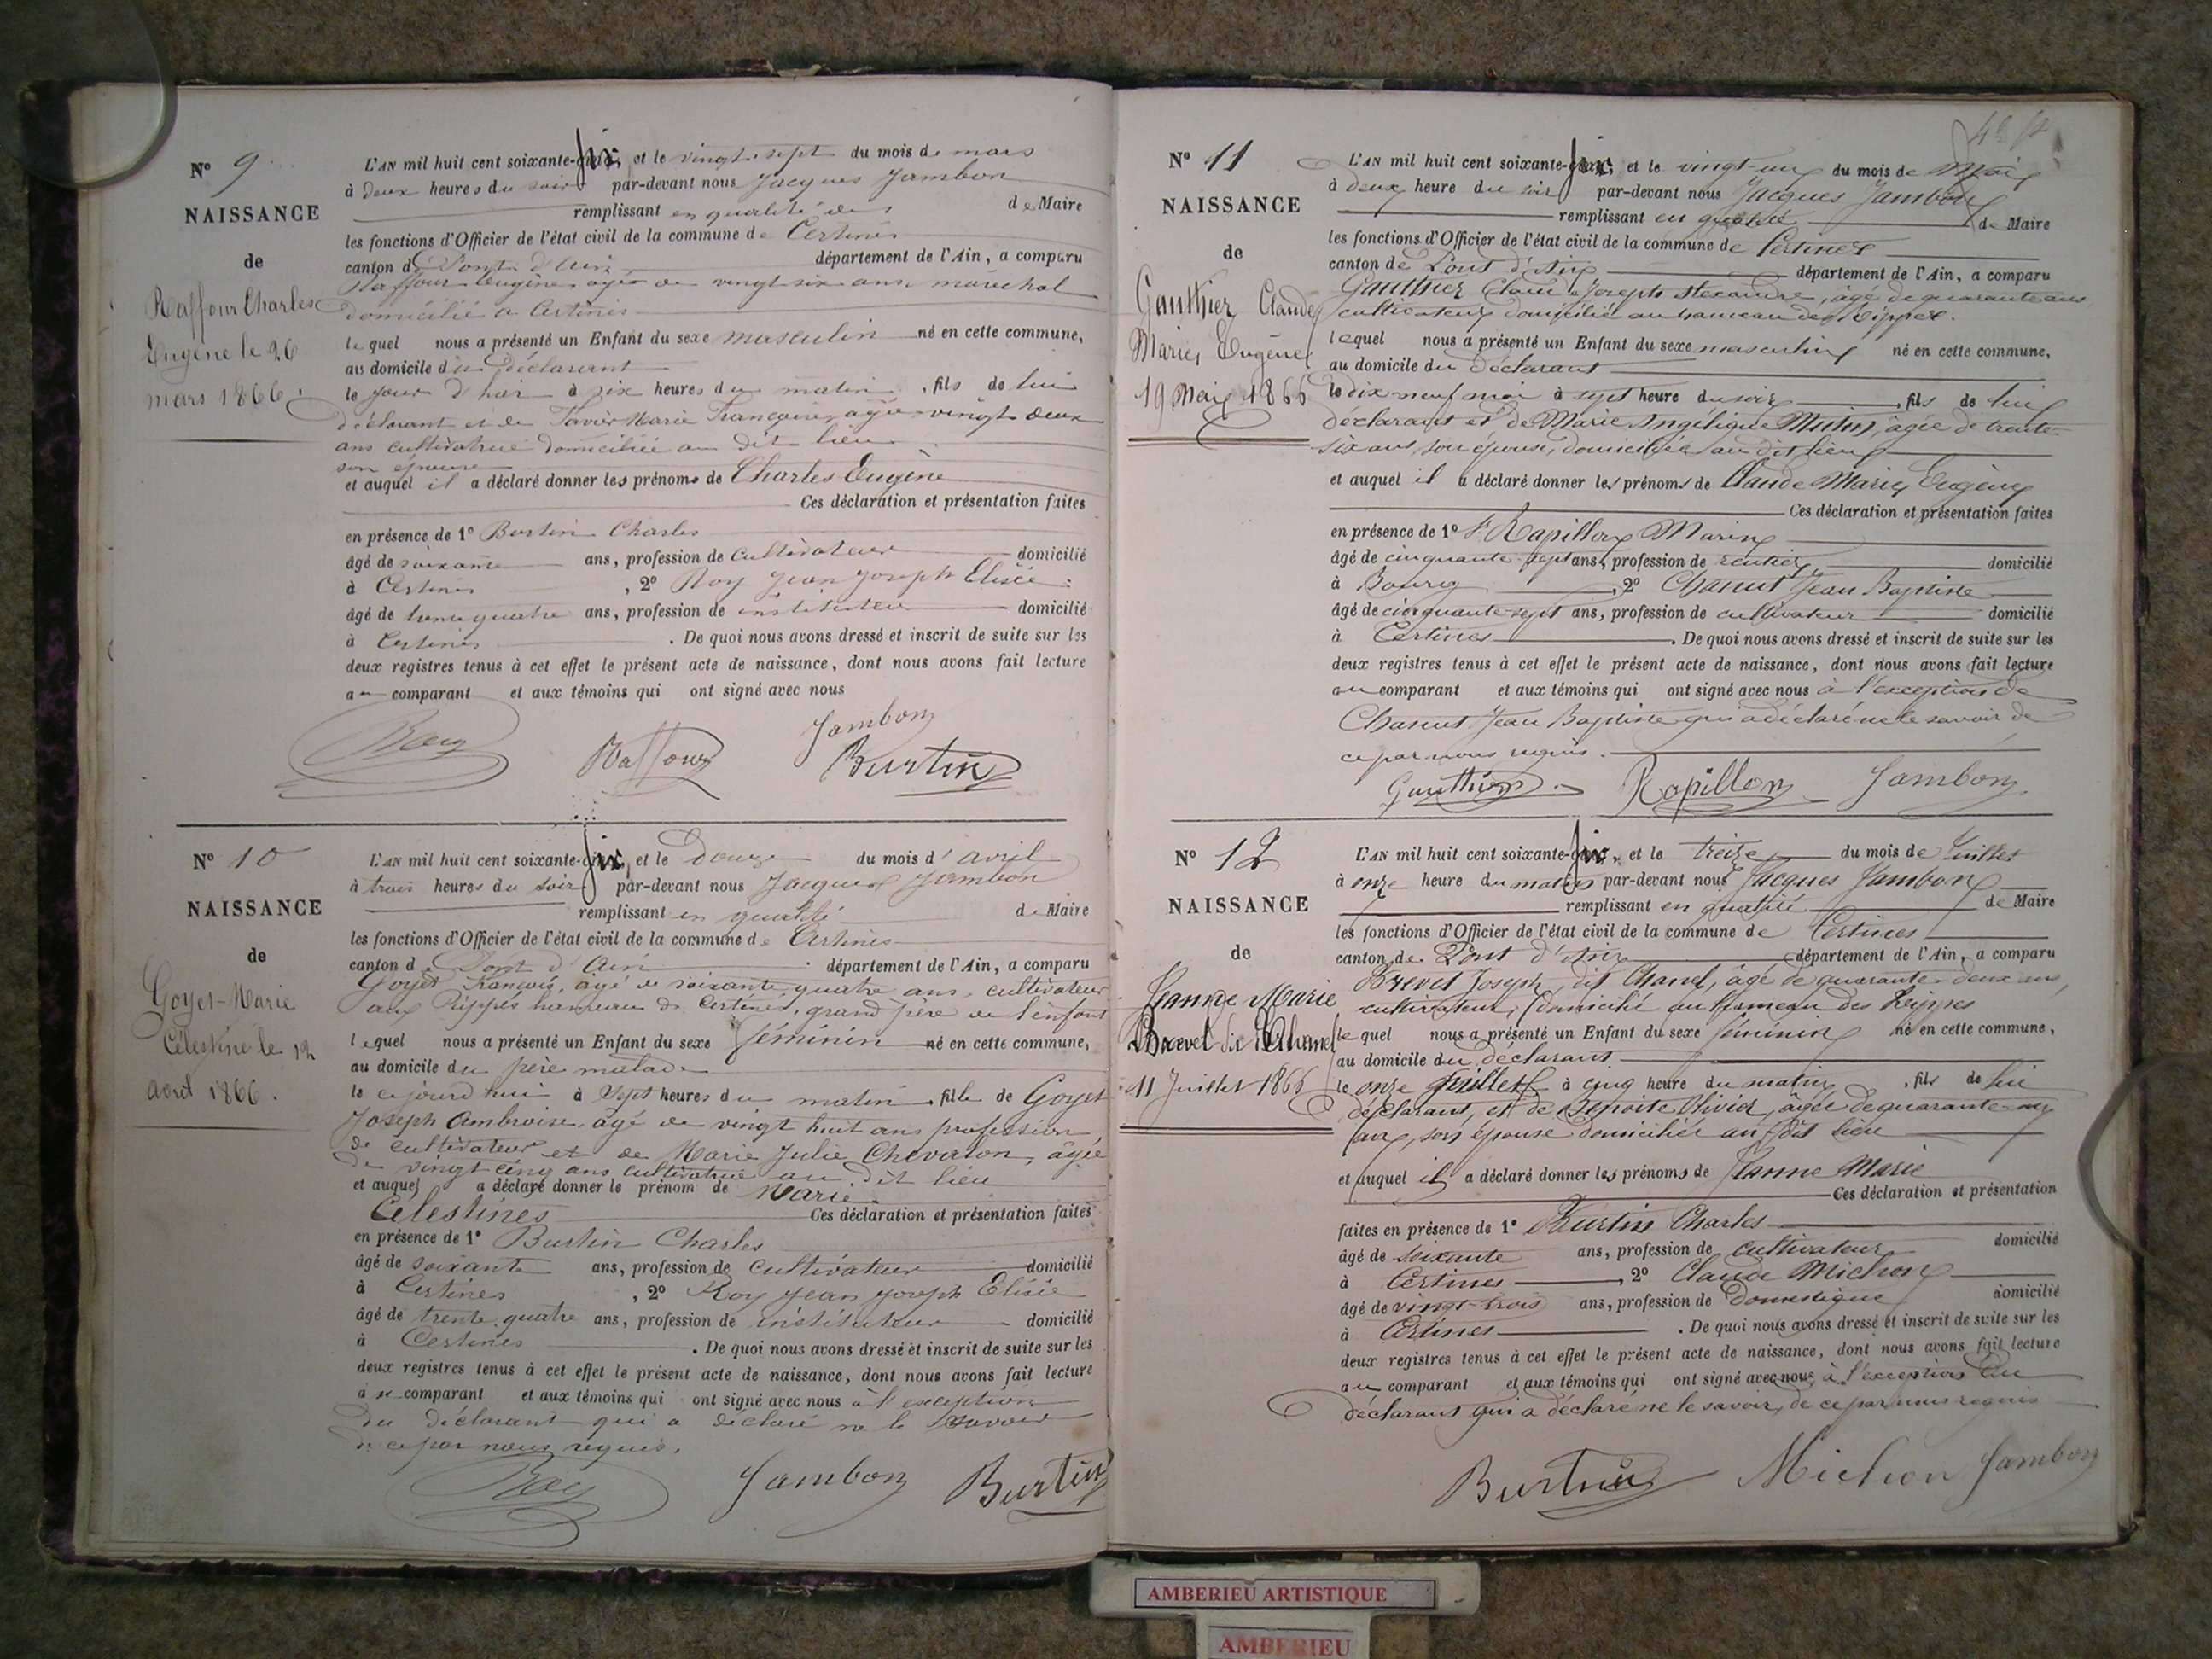 N° 9
NAISSANCE
de
Raffour Charles
Eugène le 26
mars 1866.
L'AN mil huit cent soixante-six, et le vingt-sept du mois de mars
à deux heures du soir par-devant nous Jacques Jambon
remplissant en qualité de Maire
les fonctions d'Officier de l'état civil de la commune de Certines
canton de Pont d'Ain département de l'Ain, a comparu
Raffour Eugène âgé de vingt six ans maréchal
domicilié a Certines
lequel nous a présenté un Enfant du sexe masculin né en cette commune,
au domicile du Déclarant
le jour d'hier à six heures du matin, fils de lui
déclarant et de Marie Françoise, agée vingt deux
ans cultivatrice domiciliée au dit lieu
son épouse
et auquel il a déclaré donner les prénoms de Charles Eugène
Ces déclaration et présentation faites
en présence de 1° Burtin Charles
âgé de soixante ans, profession de cultivateur domicilié
à Certines, 2° Roy Jean Joseph Elisée
âgé de trente quatre ans, profession de instituteur domicilié
à Certines. De quoi nous avons dressé et inscrit de suite sur les
deux registres tenus à cet effet le présent acte de naissance, dont nous avons fait lecture
au comparant et aux témoins qui ont signé avec nous
Roy Raffour Jambon
Burtin
N° 10
NAISSANCE
de
Goyet-Marie
Célestine le 12
avril 1866.
L'AN mil huit cent soixante-six, et le Douze du mois d'avril
à trois heures du soir par-devant nous Jacques Jambon
remplissant en qualité de Maire
les fonctions d'Officier de l'état civil de la commune de Certines
canton de Pont d'Ain département de l'Ain, a comparu
Goyet François, âgé de soixante quatre ans, cultivateur
aux Rippes hameau de Certines, grand père de l'enfant
lequel nous a présenté un Enfant du sexe féminin né en cette commune,
au domicile du père malade
le ce jourd'hui à sept heures du matin, fille de Goyet
Joseph Ambroise, âgé de vingt huit ans profession
de cultivateur et de Marie Julie Chevalon, âgée
de vingt cinq ans cultivatrice au dit lieu
et auquel a déclaré donner le prénom de Marie
Célestines Ces déclaration et présentation faites
en présence de 1° Burtin Charles
âgé de soixante ans, profession de cultivateur domicilié
à Certines, 2° Roy Jean Joseph Elisée
âgé de trente quatre ans, profession de instituteur domicilié
à Certines. De quoi nous avons dressé et inscrit de suite sur les
deux registres tenus à cet effet le présent acte de naissance, dont nous avons fait lecture
au comparant et aux témoins qui ont signé avec nous à l'exception
du déclarant qui a déclaré ne le savoir
de ce par nous requis.
Roy Jambon Burtin
N° 11
NAISSANCE
de
Gauthier Claude
Marie Eugène
19 Mai 1866
L'AN mil huit cent soixante-six, et le vingt-un du mois de Mai
à deux heure du soir par-devant nous Jacques Jambon
remplissant en qualité de Maire
les fonctions d'Officier de l'état civil de la commune de Certines
canton de Pont d'Ain département de l'Ain, a comparu
Gauthier Claude Joseph Alexandre, âgé de quarante ans
cultivateur domicilié au hameau des Rippes.
lequel nous a présenté un Enfant du sexe masculin né en cette commune,
au domicile du déclarant
le dix neuf mai à sept heure du soir, fils de lui
déclarant et de Marie Angélique Mutin, âgée de trente-
six ans, son épouse, domiciliée au dit lieu
et auquel il a déclaré donner les prénoms de Claude Marie Eugène
Ces déclaration et présentation faites
en présence de 1° Rapillon Marin
âgé de cinquante-sept ans, profession de rentier domicilié
à Bourg, 2° Chanut Jean Baptiste
âgé de cinquante-sept ans, profession de cultivateur domicilié
à Certines. De quoi nous avons dressé et inscrit de suite sur les
deux registres tenus à cet effet le présent acte de naissance, dont nous avons fait lecture
au comparant et aux témoins qui ont signé avec nous à l'exception de
Chanut Jean Baptiste qui a déclaré ne le savoir de
ce par nous requis.
Gauthier Rapillon Jambon
N° 12
NAISSANCE
de
Jeanne Marie
Brevet dit Chanel
11 Juillet 1866
L'AN mil huit cent soixante-six, et le treize du mois de Juillet
à onze heure du matin par-devant nous Jacques Jambon
remplissant en qualité de Maire
les fonctions d'Officier de l'état civil de la commune de Certines
canton de Pont d'Ain département de l'Ain, a comparu
Brevet Joseph, dit Chanel, âgé de quarante-deux ans,
cultivateur, domicilié au hameau des Rippes
lequel nous a présenté un Enfant du sexe féminin né en cette commune,
au domicile du déclarant
le onze Juillet à cinq heure du matin, fils de lui
déclarant, et de Benoite Olivier, âgée de quarante-un
ans, son épouse domiciliée au dit lieu
et auquel il a déclaré donner les prénoms de Jeanne Marie
Ces déclaration et présentation
faites en présence de 1° Burtin Charles
âgé de soixante ans, profession de cultivateur domicilié
à Certines, 2° Claude Michon
âgé de vingt-trois ans, profession de Domestique domicilié
à Certines. De quoi nous avons dressé et inscrit de suite sur les
deux registres tenus à cet effet le présent acte de naissance, dont nous avons fait lecture
au comparant et aux témoins qui ont signé avec nous à l'exception du
déclarant qui a déclaré ne le savoir, de ce par nous requis
Burtin Michon Jambon
AMBERIEU ARTISTIQUE
AMBERIEU